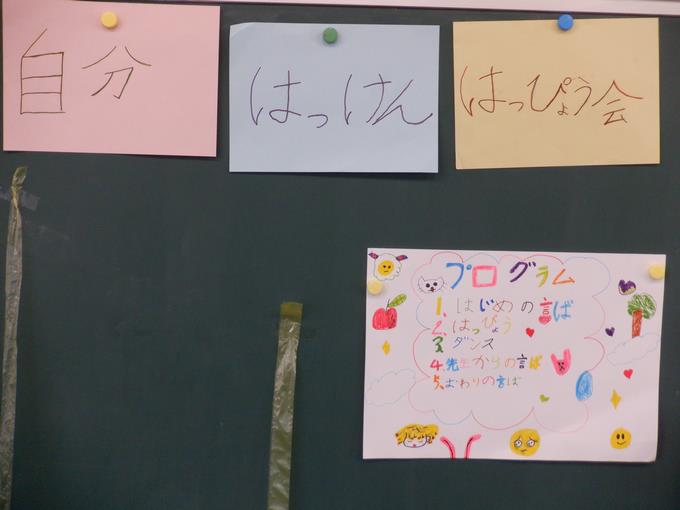 自分
はっけん
はっぴょう会
プログラム
1. はじめの言ば
2. はっぴょう
3. ダンス
4. 先生からの言ば
5. おわりの言ば